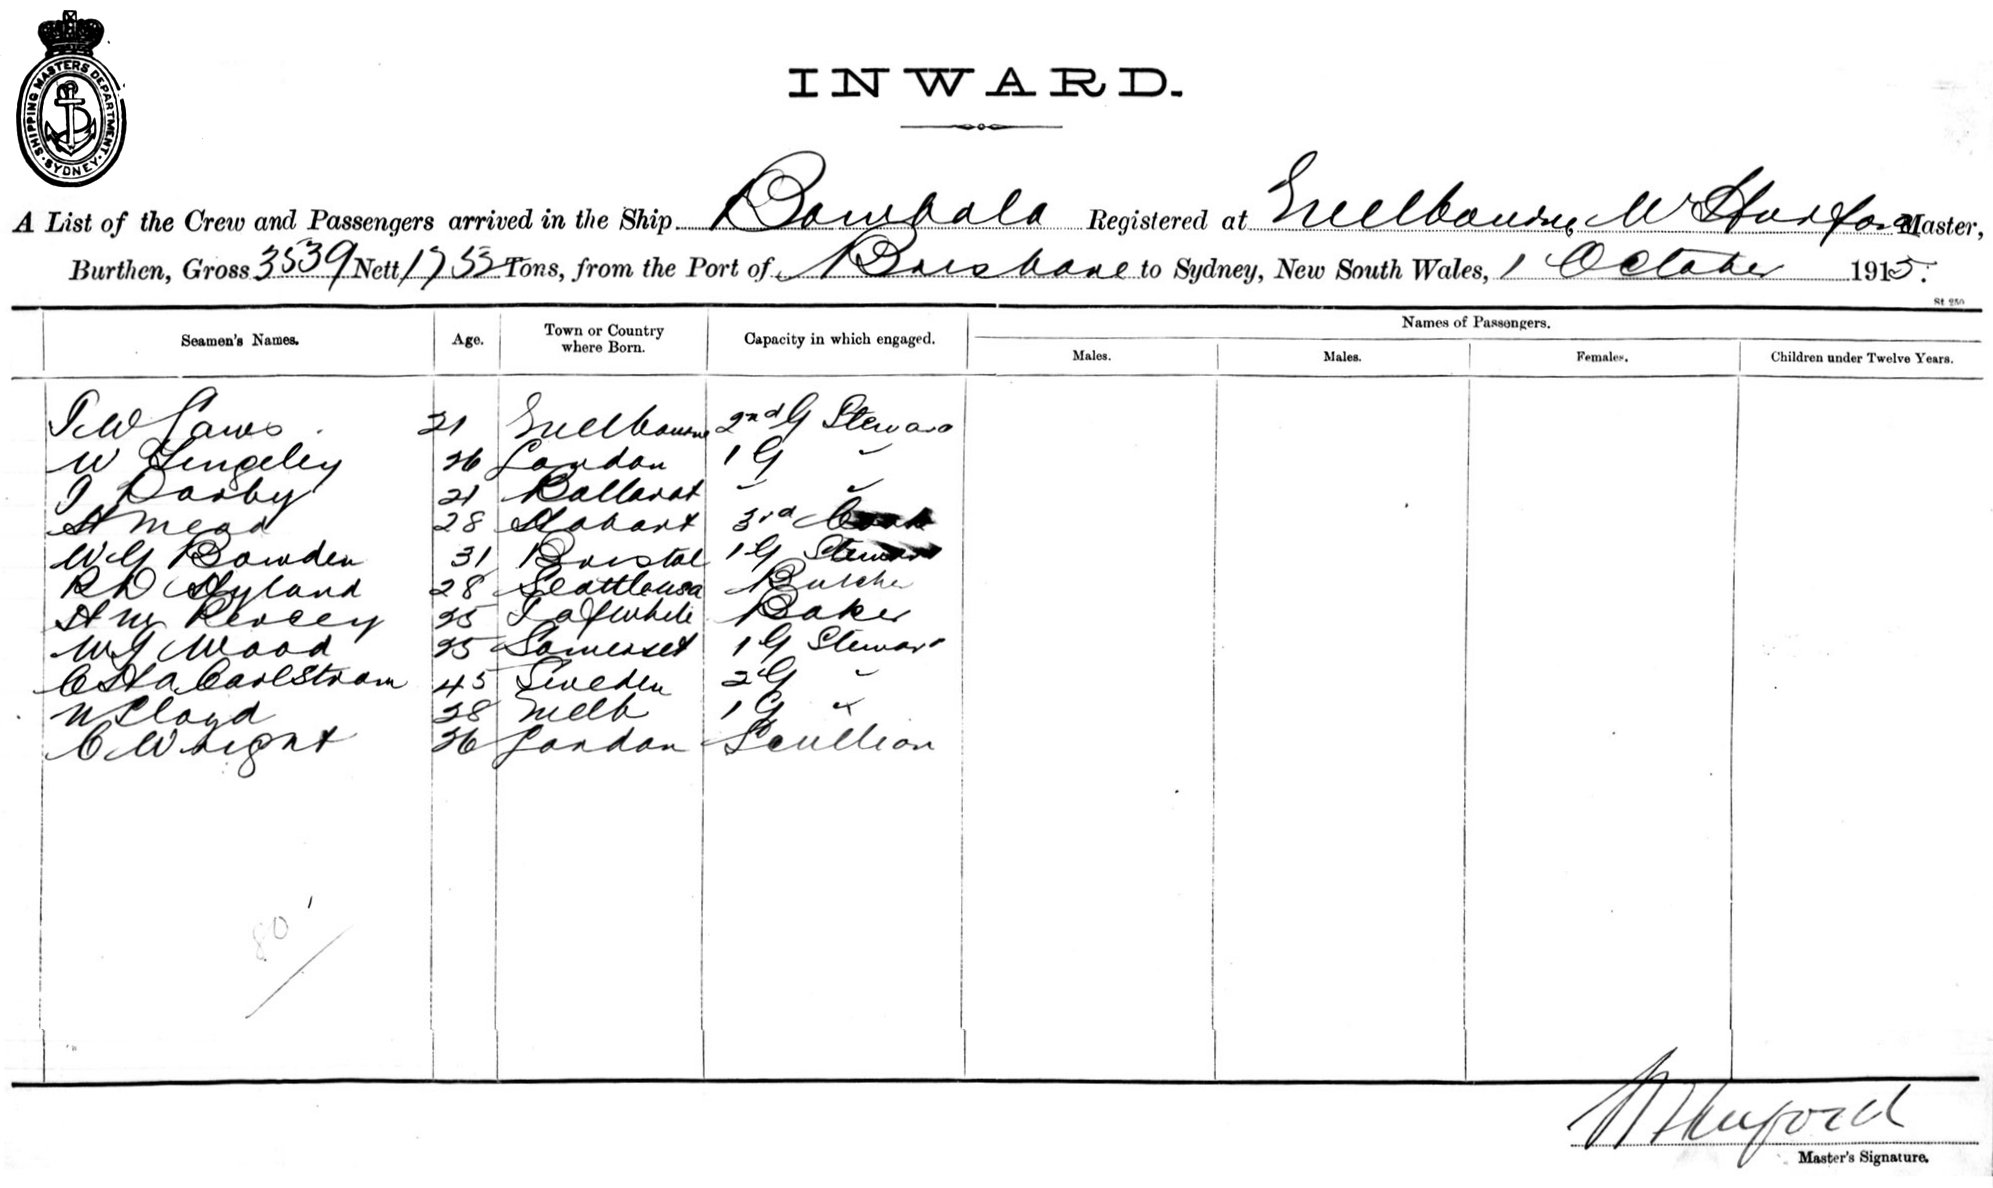 SHIPPING MASTERS DEPARTMENT. SYDNEY
INWARD.
A List of the Crew and Passengers arrived in the Ship Bombala Registered at Melbourne, W Hurford Master,
Burthen, Gross 3539 Nett 1753 Tons, from the Port of Brisbane to Sydney, New South Wales, 1 October 1915.
St 250
Seamen's Names. Age. Town or Country where Born. Capacity in which engaged. Names of Passengers.
Males. Males. Females. Children under Twelve Years.
21 Melbourne 2nd G Steward
W Lingeley 26 London 1 G "
Darby 21 Ballarat " "
H Mead 28 Hobart 3rd Cook
W G Bowden 31 Bristol 1 G Steward
R D Hyland 28 Butcher
H M Percey 25 Baker
W G Wood 25 Somerset 1 G Steward
C H A Carlstrom 45 Sweden 2 G "
N Lloyd 28 Melb 1 G "
C Wright 36 London Scullion
80
W Hurford
Master's Signature.